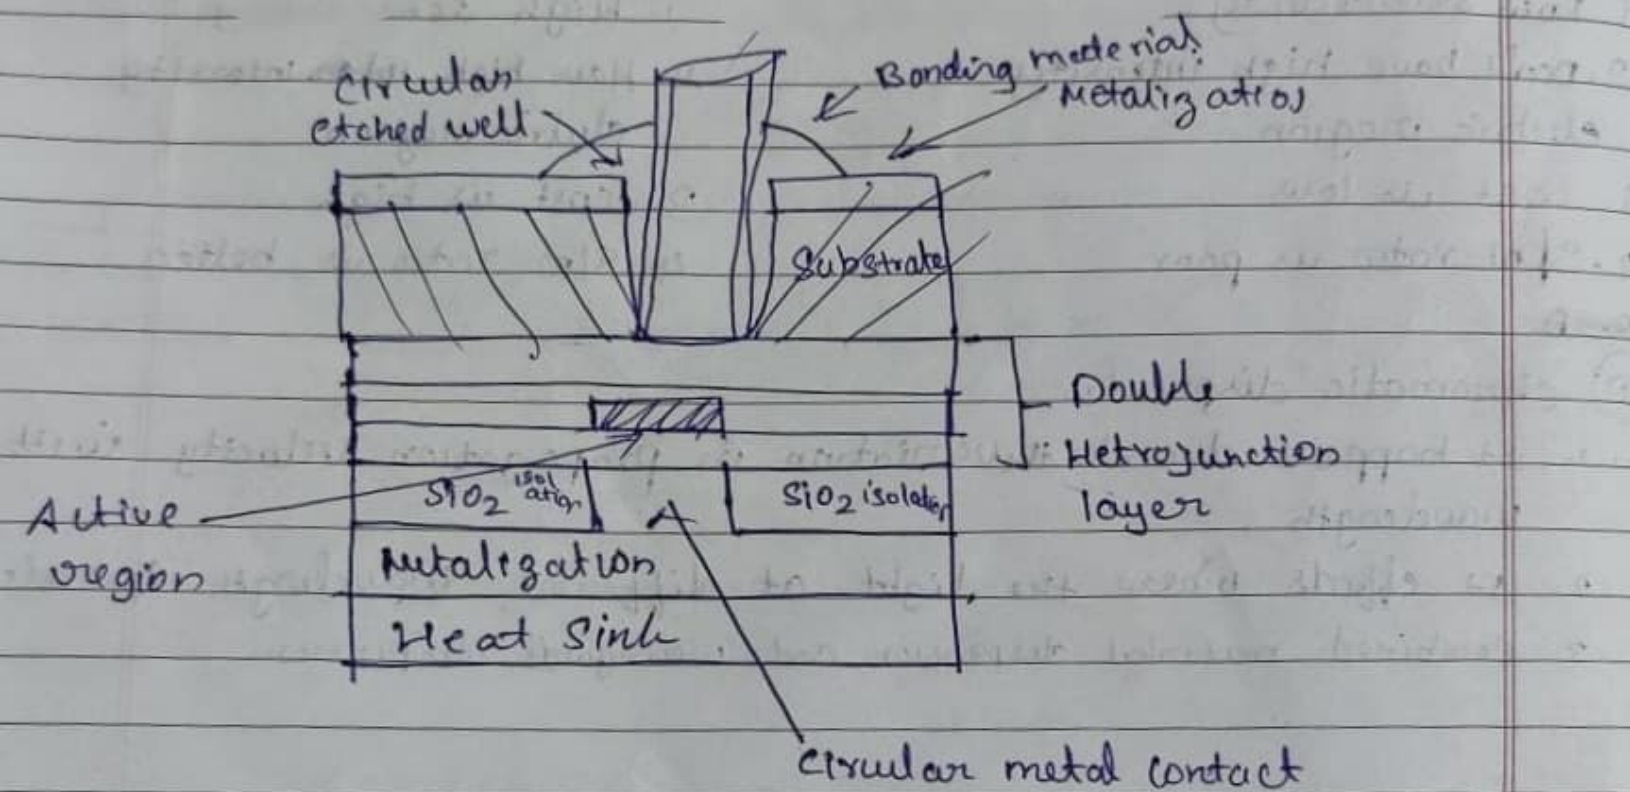 Circular
etched well
Bonding material
Metalization
Substrate
Double
Hetrojunction
layer
SiO2 isolation
SiO2 isolator
Active
region
Metalization
Heat Sink
Circular metal contact